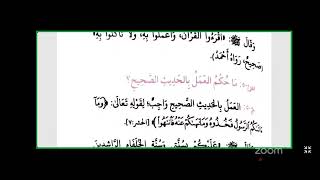 وَقَالَ ﷺ: «اقْرَءُوا الْقُرْآنَ، وَاعْمَلُوا بِهِ، وَلَا تَأْكُلُوا بِهِ»
(صَحِيحٌ، رَوَاهُ أَحْمَدُ).
مَا حُكْمُ الْعَمَلِ بِالْحَدِيثِ الصَّحِيحِ؟
الْعَمَلُ بِالْحَدِيثِ الصَّحِيحِ وَاجِبٌ؛ لِقَوْلِهِ تَعَالَى: ﴿وَمَا
آتَاكُمُ الرَّسُولُ فَخُذُوهُ وَمَا نَهَاكُمْ عَنْهُ فَانْتَهُوا﴾ [الحشر: ٧].
عَلَيْكُمْ بِسُنَّتِي وَسُنَّةِ الْخُلَفَاءِ الرَّاشِدِينَ
zoom